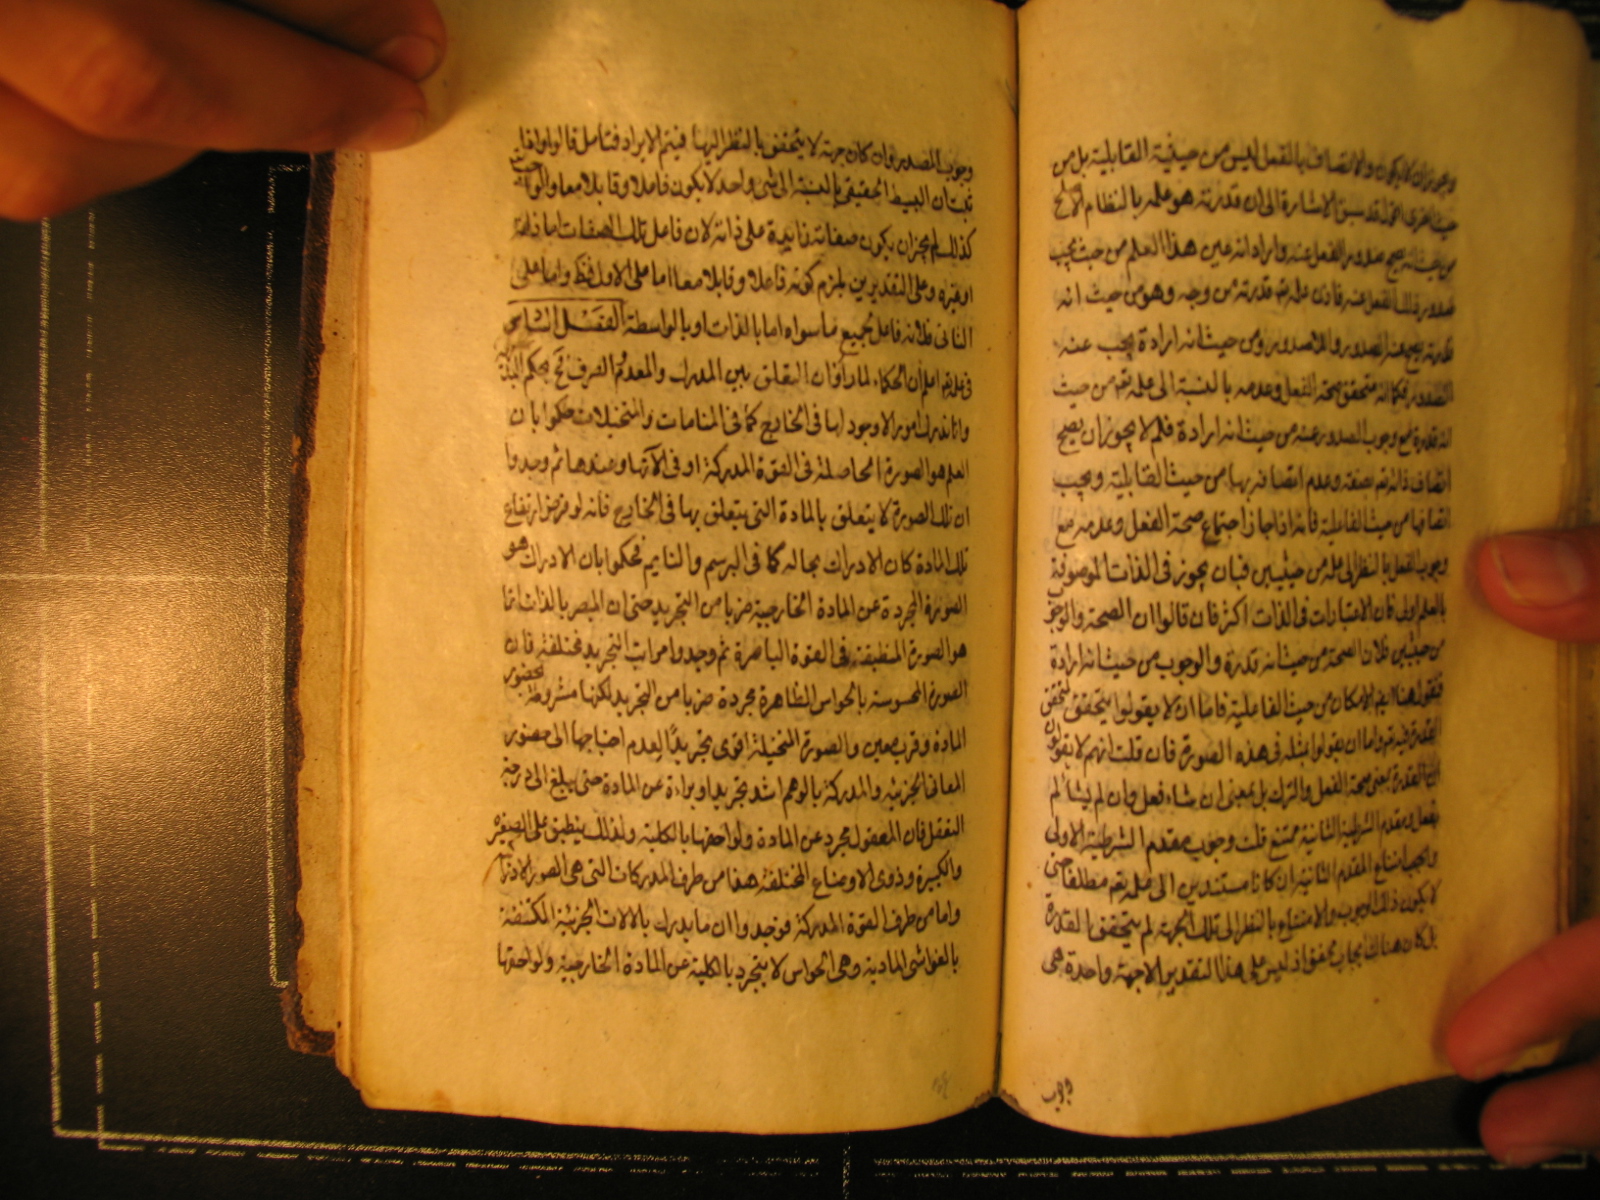 ان لا يكون والاتصاف بالفعل ليس من حيثية القابلية بل من
حيث اخرى قد سبق الاشارة الى ان قدرته هو علمه بالنظام
من حيث انه يصح صدور الفعل عنه وارادته عين هذا العلم من حيث يجب
صدور ذلك الفعل عنه فاذن قدرته من وجه وهو من حيث انه
قدرته يصح عنه الصدور واللاصدور ومن حيث انه ارادة يجب عنه
الصدور فكما انه متحقق صحة الفعل وعدمه بالنسبة الى علمه تعم من حيث
انه قدرة مع وجوب الصدور عنه من حيث انه ارادة فلم لا يجوز ان يصح
اتصاف ذاته تعم بصفة وعدم اتصافه بها من حيث القابلية ويجب
اتصافها من حيث الفاعلية فانه اذا جاز اجتماع صحة الفعل وعدمه مع
وجوب الفعل بالنظر الى علمه من حيثيتين فبان يجوز في الذات الموصوفة
بالعلم اولى فان الاعتبارات في الذات اكثر فان قالوا ان الصحة والوجوب
من حيثيتين فلان الصحة من حيث انه قدرة والوجوب من حيث انه ارادة
فنقول هنا ايضا الامكان من حيث الفاعلية فاما ان لا يقولوا بتحقق
القدرة فيه تعم واما ان يقولوا بمثله في هذه الصورة فان قلت انهم لا يقولون
ان القدرة بمعنى صحة الفعل والترك بل بمعنى ان شاء فعل وان لم يشأ لم
يفعل ومقدم الشرطية الثانية ممتنع قلت وجوب مقدم الشرطية الاولى
وامتناع المقدم الثانية ان كانا مستندين الى علمه تعم مطلقا حتى
لا يكون ذلك الوجوب والامتناع بالنظر الى تلك الجهة لم يتحقق القدرة
بل كان هناك ايجاب محض اذ ليس على هذا التقدير الا جهة واحدة هي
وجوب
وجوب المصدر وان كان جهة لا يتحقق بالنظر اليها فيتم الايراد فتأمل قالوا واذا
ثبت ان البسيط الحقيقي بالنسبة الى شئ واحد لا يكون فاعلا وقابلا معا والواجب
كذلك لم يجز ان يكون صفاته زايدة على ذاته لان فاعل تلك الصفات اما ذاته
او غيره وعلى التقديرين يلزم كونه فاعلا وقابلا معا اما على الاول فظ واما على
الثاني فلانه فاعل لجميع ما سواه اما بالذات او بالواسطة الفصل السادس
في علمه تعم اعلم ان الحكماء لما رأوا ان التعلق بين المدرك والمعدوم الصرف مح بحكم
وانا ندرك امورا لا وجود لها في الخارج كما في المنامات والمتخيلات حكموا بان
العلم هو الصورة الحاصلة في القوة المدركة او في الآتها وعندها ثم وجدوا
ان تلك الصورة لا يتعلق بالمادة التي يتعلق بها في الخارج فانه لو فرض ارتفاع
تلك المادة كان الادراك بحاله كما في المبرسم والنايم فحكموا بان الادراك هو
الصورة المجردة عن المادة الخارجية ضربا من التجريد حتى ان المبصر بالذات انما
هو الصورة المنطبقة في القوة الباصرة ثم وجدوا مراتب التجريد مختلفة فان
الصورة المحسوسة بالحواس الظاهرة مجردة ضربا من التجريد لكنها مشروطة بحضور
المادة وقرب معين والصورة المتخيلة اقوى تجريدا لعدم احتياجها الى حضور
المعاني الجزئية والمدركة بالوهم اشد تجريدا وبراءة عن المادة حتى يبلغ الى درجة
التعقل فان المعقول مجرد عن المادة ولواحقها بالكلية ولذلك ينطبق على الصغيرة
والكبيرة وذوى الاوضاع المختلفة هذا من طرف المدركات التي هي الصور
واما من طرف القوة المدركة فوجدوا ان ما يدرك بالالات الجزئية المكتنفة
بالغواشي المادية وهي الحواس لا يتجرد بالكلية عن المادة الخارجية ولواحقها